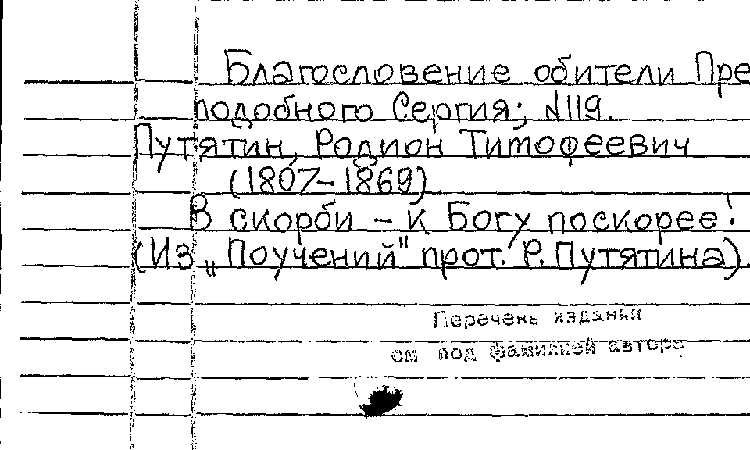 Благословение обители Пре
подобного Сергия; N119.
Путятин, Родион Тимофеевич
(1807-1869)
В скорби - к Богу поскорее!
(Из „Поучений" прот. Р. Путятина)
Перечень издани
см под фамилией автора